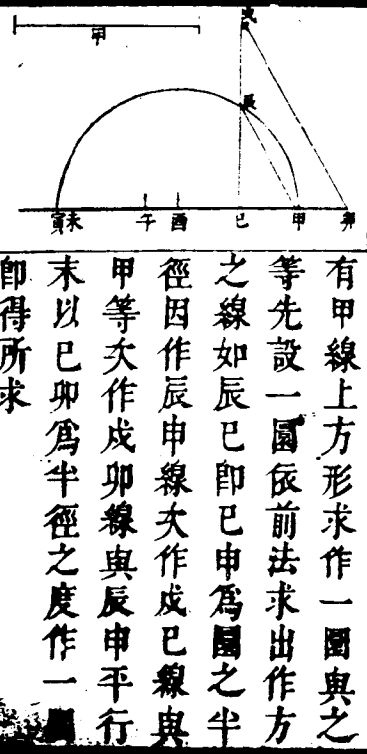 甲
戌
辰
寅未 午 酉 巳 申 卯
有甲線上方形求作一圜與之
等先設一圜依前法求出作方
之線如辰巳卽巳申爲圜之半
徑因作辰申線次作戌巳線與
甲等次作戌卯線與辰申平行
末以巳卯爲半徑之度作一圜
卽得所求